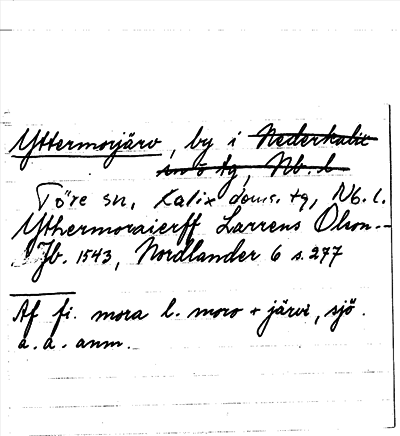 Yttermorjärv, by i Nederkalix
sn o tg, Nb. l
Töre sn, Kalix doms. tg, Nb. l.
Ythermoraierff Larrens Olson.-
Jb. 1543, Nordlander 6 s. 277
Af fi. mora l. moro + järvi, sjö.
a. a. anm.